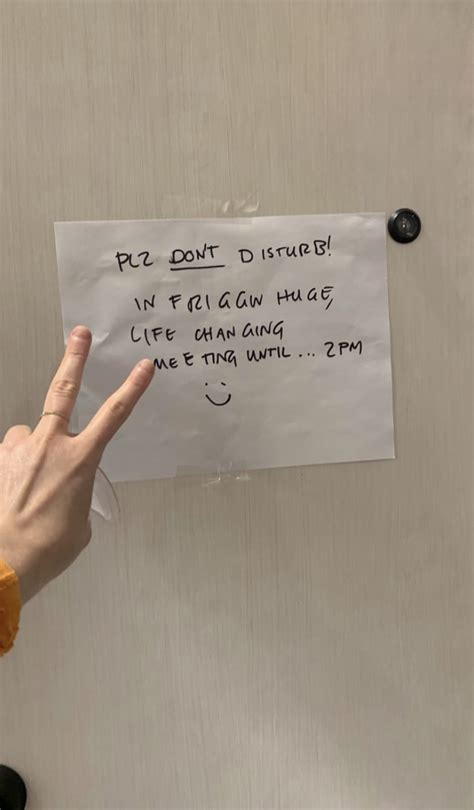 PLZ DON'T DISTURB!
IN FRIGGIN HUGE,
LIFE CHANGING
MEETING UNTIL... 2PM